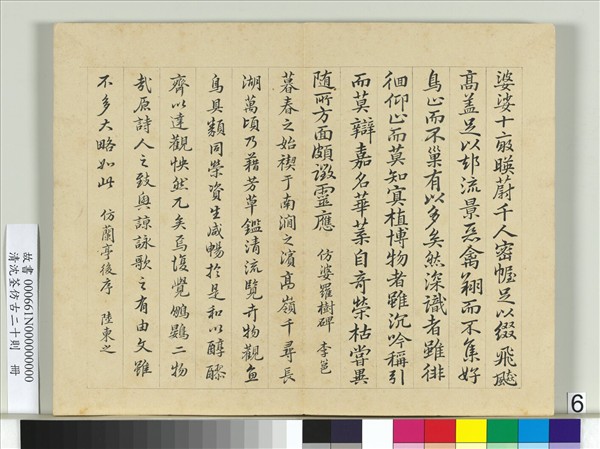 婆娑十畝暎蔚千人密幄足以綴飛飈
高盖足以却流景惡禽翔而不集好
鳥止而不巢有以多矣然深識者雖徘
徊仰止而莫知冥植博物者雖沉吟稱引
而莫辯嘉名華葉自奇榮枯嘗異
随所方面頗徵靈應 仿娑羅樹碑 李邕
暮春之始禊于南澗之濱高嶺千尋長
湖萬頃乃藉芳草鑑清流覽卉物觀魚
鳥具類同榮資生咸暢於是和以醇醪
齊以達觀怏然兀矣焉復覺鵬鷃二物
哉原詩人之致興諒詠歌之有由文雖
不多大略如此 仿蘭亭後序 陸柬之
故書 000661N000000000
清沈荃仿古二十則 冊
6